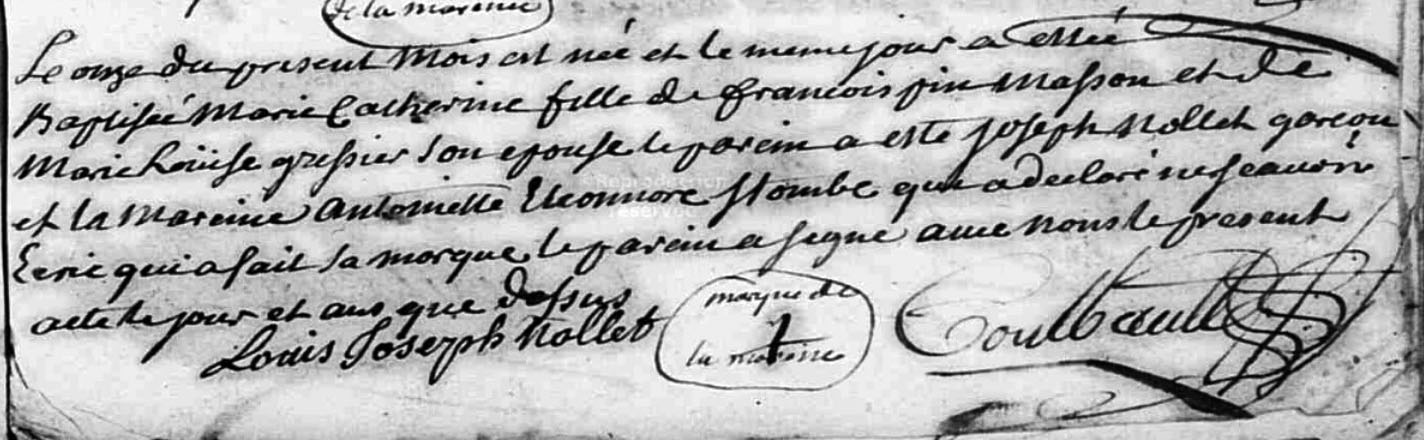 de la mareine
Le onze du present mois est née et le meme jour a estée
Baptisée Marie Catherine fille de francois pin Masson et de
Marie Loüise gressier son epouse le parein a este joseph Nollet garcon
et la Mareine antoinette Eleonnore flombe que a declaré ne scauoir
Ecrie qui a fait sa marque le parein a segné auec nous le present
acte le jour et ans que dessus
Louis Joseph Nollet
marque de
la mareine
Coulbault